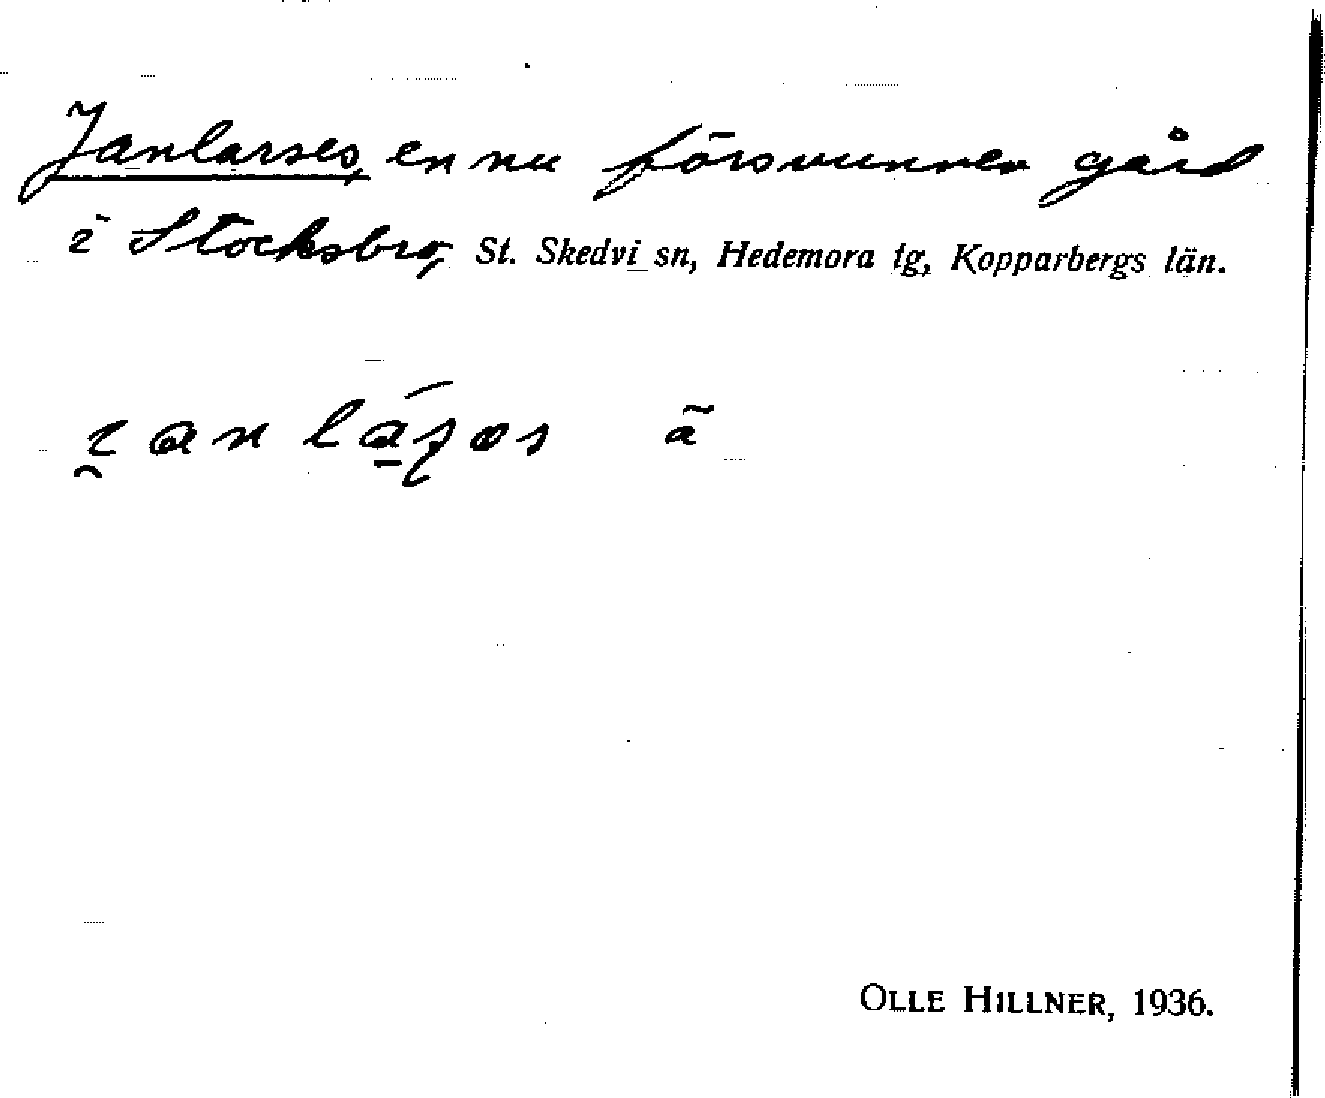 Janlarses, en nu försvunnen gård
i Stocksbro, St. Skedvi sn, Hedemora tg, Kopparbergs län.
OLLE HILLNER, 1936.